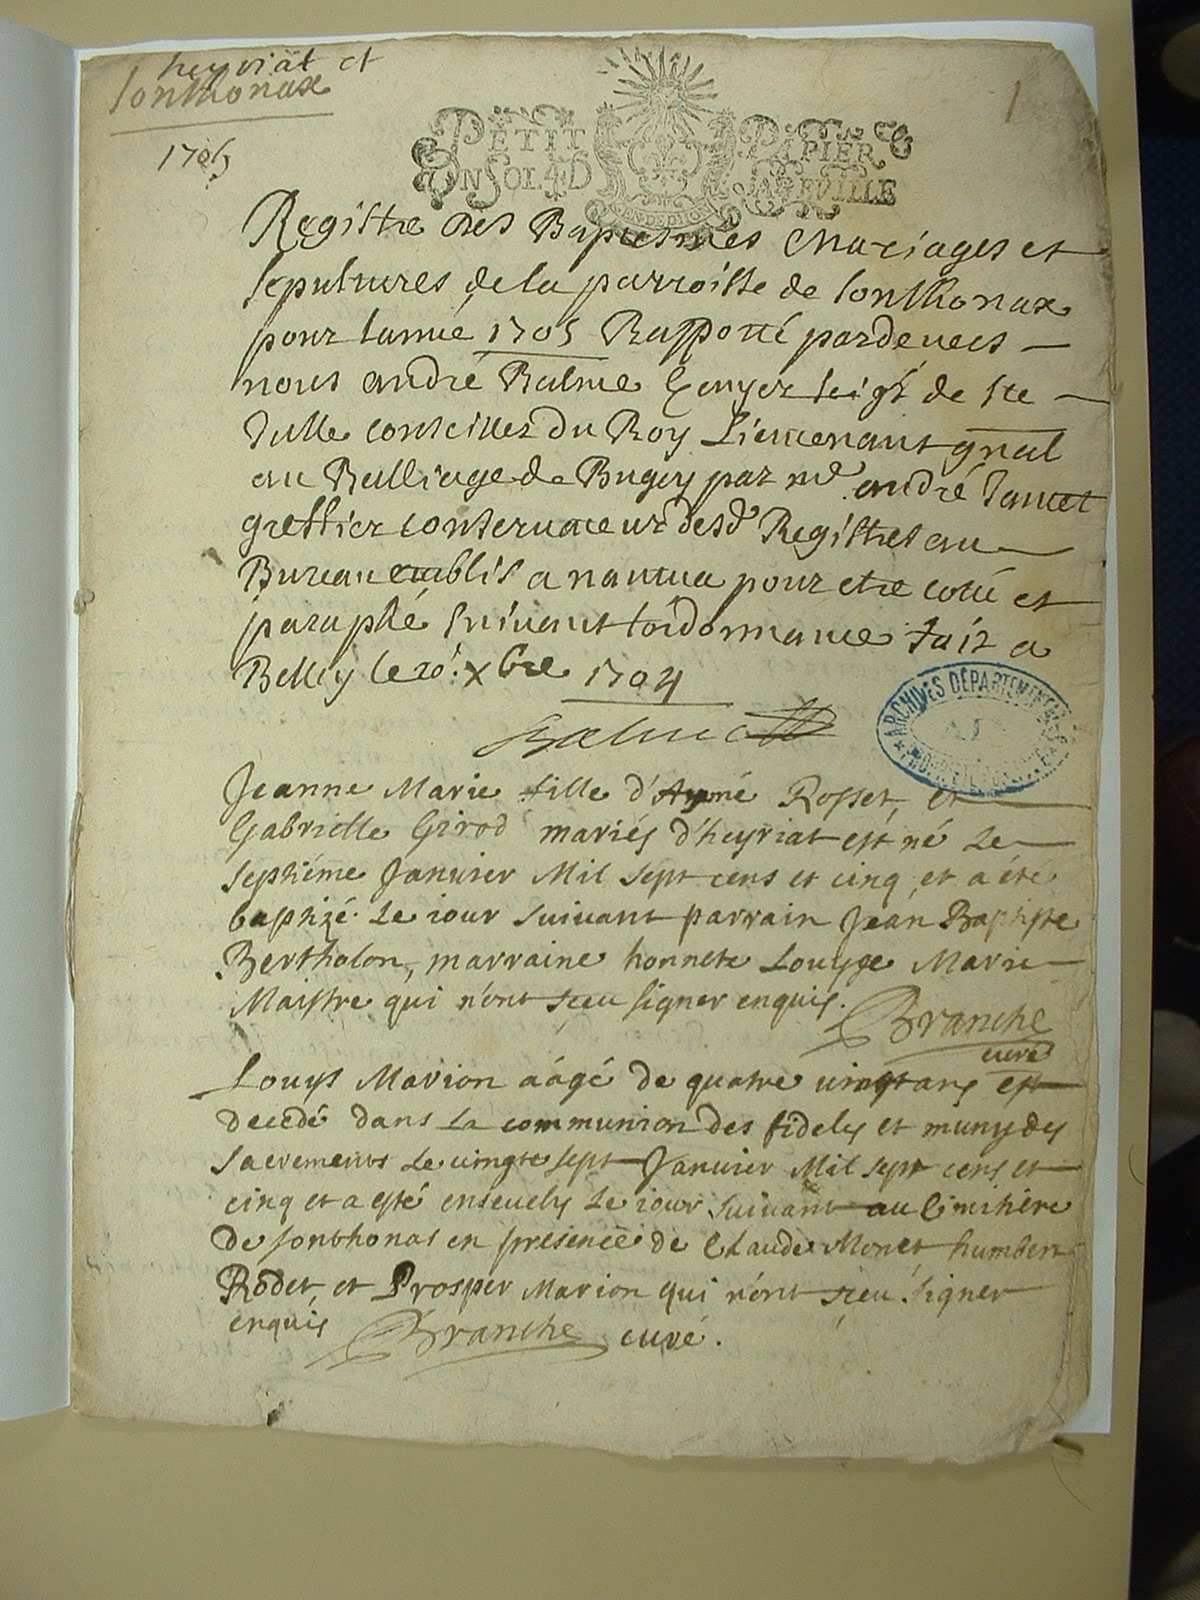 heyriat et
Sonthonax
1705
1
PETIT PAPIER
UN SOL 4 D
Registre des Baptesmes Mariages et
sepultures de la parroisse de Sonthonax
pour lannée 1705 Rapporté pardevers
nous andré Balme Escuyer seigr de ste
Julle conseiller du Roy Lieutenant gnal
au Balliage de Bugey par me andré Jantet
greffier conservateur desd Registres au
Bureau etablis a nantua pour etre cotté et
paraphé suivant lordonnance fait a
Belley le 20. xbre 1704
Balme
ARCHIVES DÉPARTEMENTALES
AIN
Jeanne Marie fille d'Aymé Rosset, et
Gabrielle Girod mariés d'heyriat est né Le
septiéme Janvier Mil sept cens et cinq et a été
baptizé Le iour suivant parrain Jean Baptiste
Bertholon, marraine honnete Louyse Marie
Maistre qui n'ont sceu signer enquis.
Branche
curé
Louys Marion aágé de quatre vingt ans est
decedé dans La communion des fidels et muny des
Sacrements Le vingte sept Janvier Mil sept cens et
cinq et a esté ensevely Le iour suivant au Cimitiere
de sonthonas en présence de Claude Monet humbert
Rodet, et Prosper Marion qui n'ont sceu signer
enquis Branche curé.